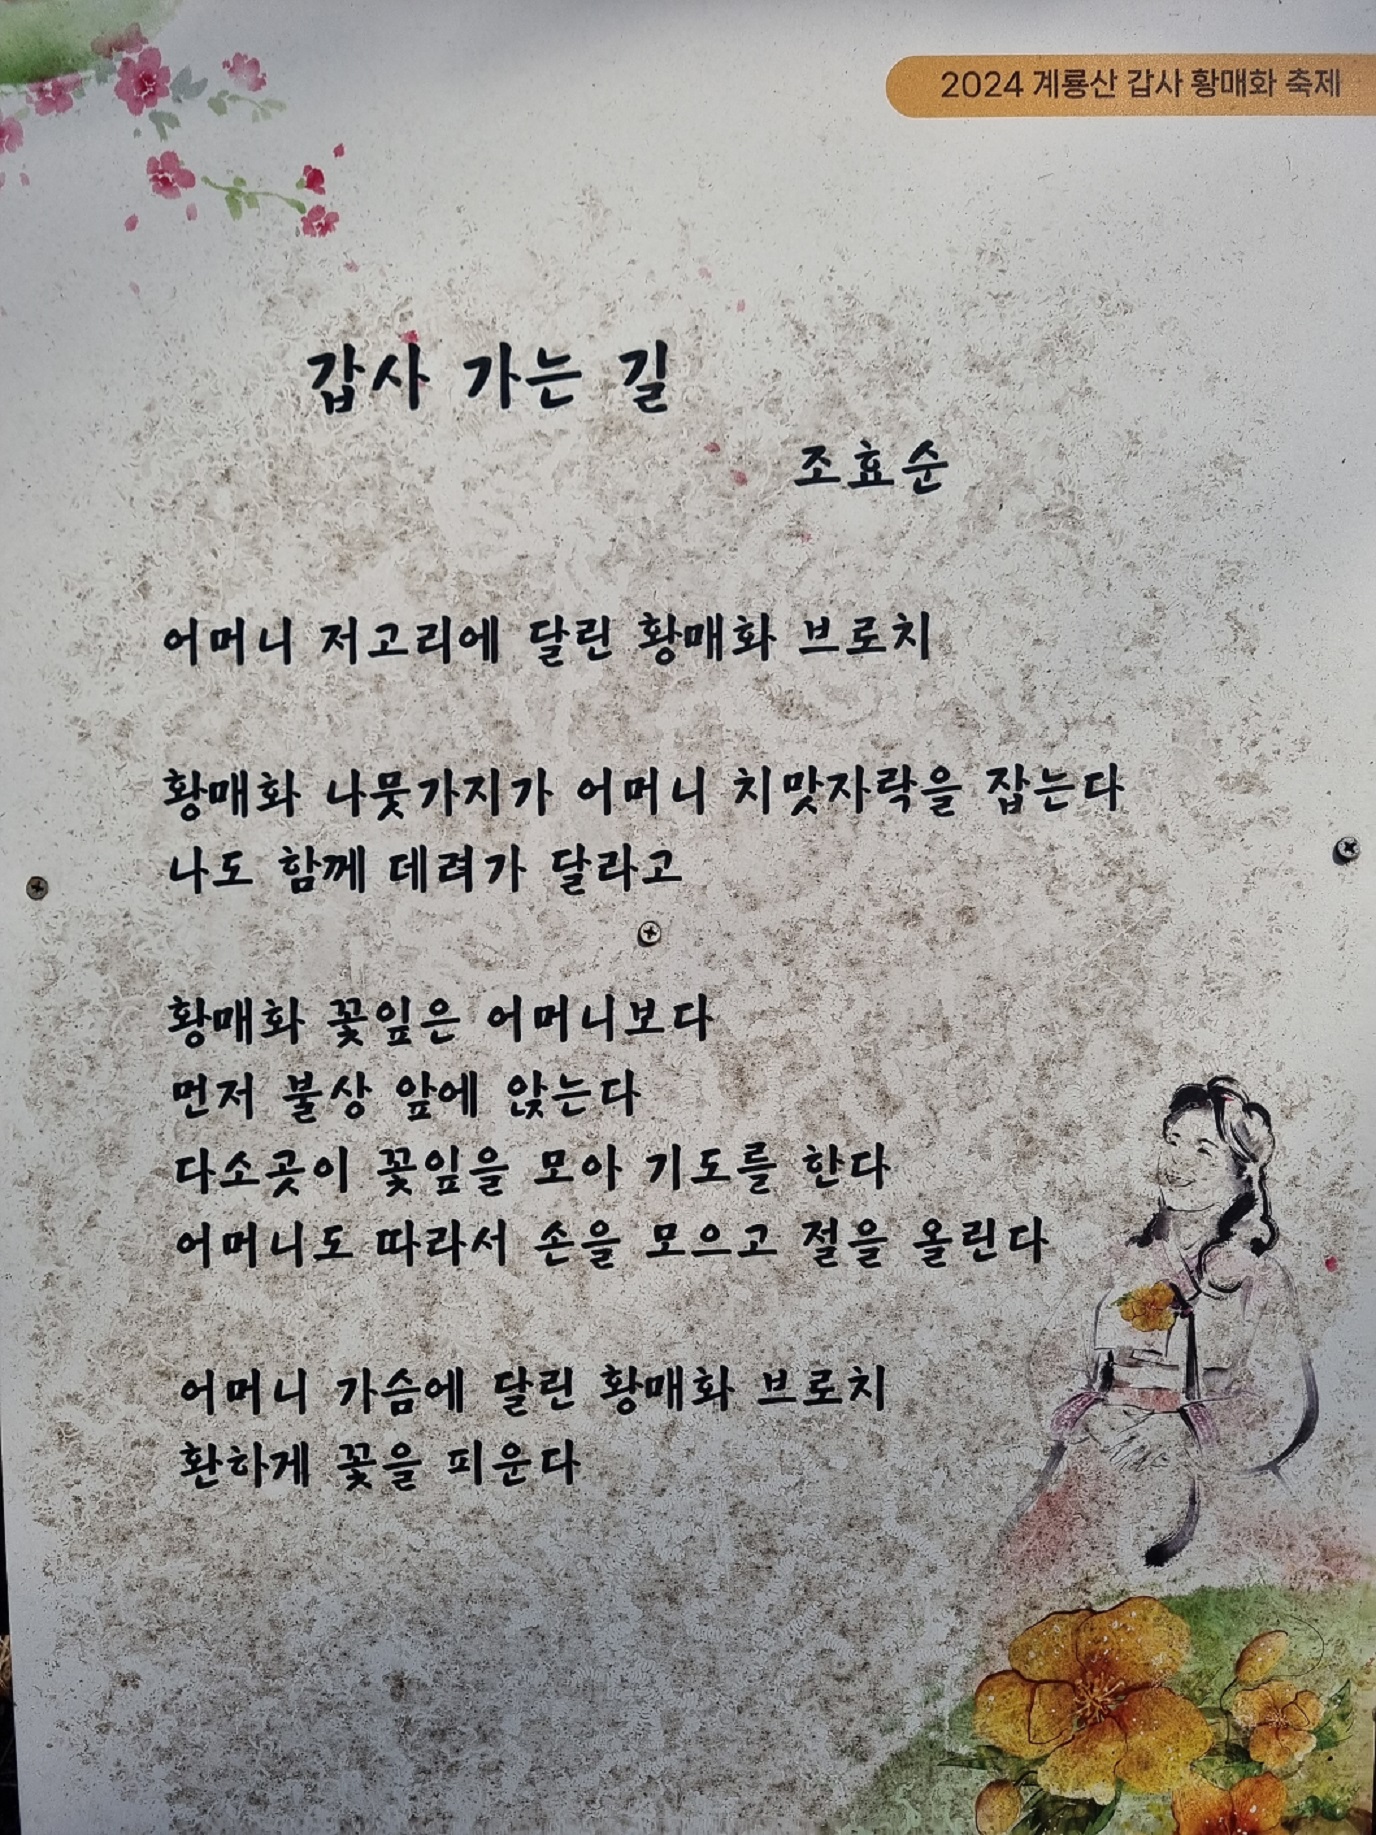 2024 계룡산 갑사 황매화 축제
갑사 가는 길
조효순
어머니 저고리에 달린 황매화 브로치
황매화 나뭇가지가 어머니 치맛자락을 잡는다
나도 함께 데려가 달라고
황매화 꽃잎은 어머니보다
먼저 불상 앞에 앉는다
다소곳이 꽃잎을 모아 기도를 한다
어머니도 따라서 손을 모으고 절을 올린다
어머니 가슴에 달린 황매화 브로치
환하게 꽃을 피운다